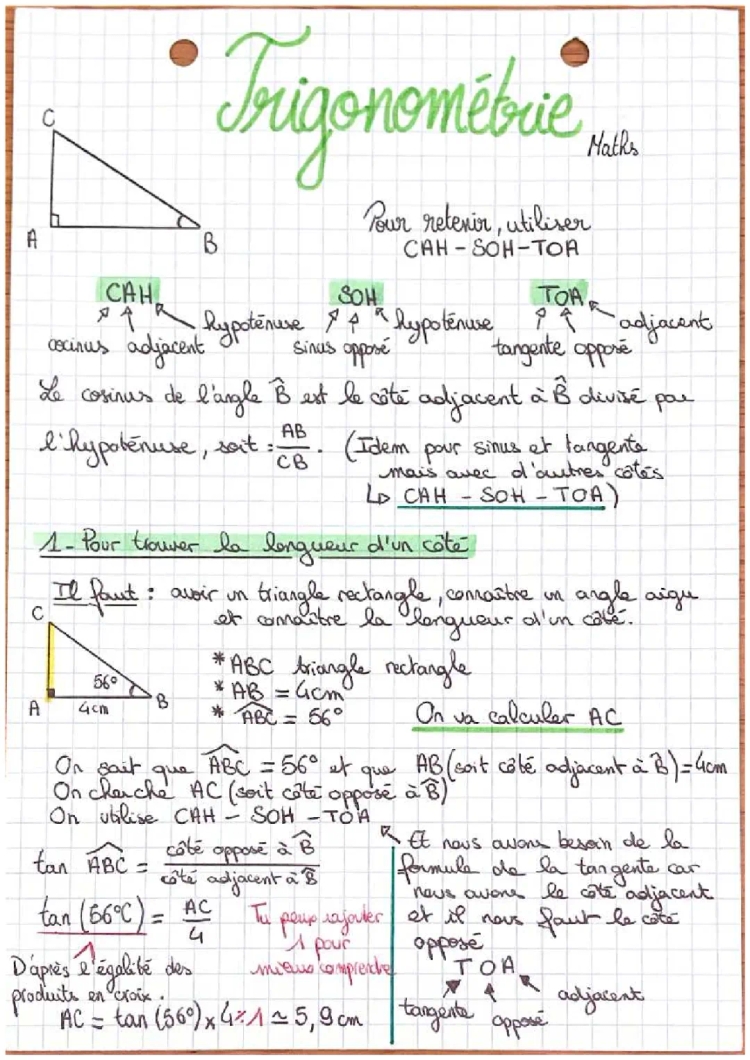 Trigonométrie
Maths
C
A
B
Pour retenir, utiliser
CAH - SOH - TOA
CAH
SOH
TOA
hypoténuse
hypoténuse
adjacent
cocinus adjacent
sinus opposé
tangente opposé
Le cosinus de l'angle B̂ est le côté adjacent à B̂ divisé par
l'hypoténuse, soit : AB/CB. (Idem pour sinus et tangente
mais avec d'autres côtés
↳ CAH - SOH - TOA)
1 - Pour trouver la longueur d'un côté
Il faut : avoir un triangle rectangle, connaître un angle aigu
et connaître la longueur d'un côté.
C
56°
A
4cm
B
* ABC triangle rectangle
* AB = 4cm
* ABC = 56°
On va calculer AC
On sait que ABC = 56° et que AB (soit côté adjacent à B̂) = 4cm
On cherche AC (soit côté opposé à B̂)
On utilise CAH - SOH - TOA
tan ABC = côté opposé à B̂ / côté adjacent à B̂
tan (56°C) = AC/4
1
Tu peux rajouter
1 pour
mieux comprendre
D'après l'égalité des
produits en croix.
AC = tan (56°) × 4 % 1 ≃ 5,9 cm
Et nous avons besoin de la
formule de la tangente car
nous avons le côté adjacent
et il nous faut le côté
opposé
TOA
tangente
opposé
adjacent